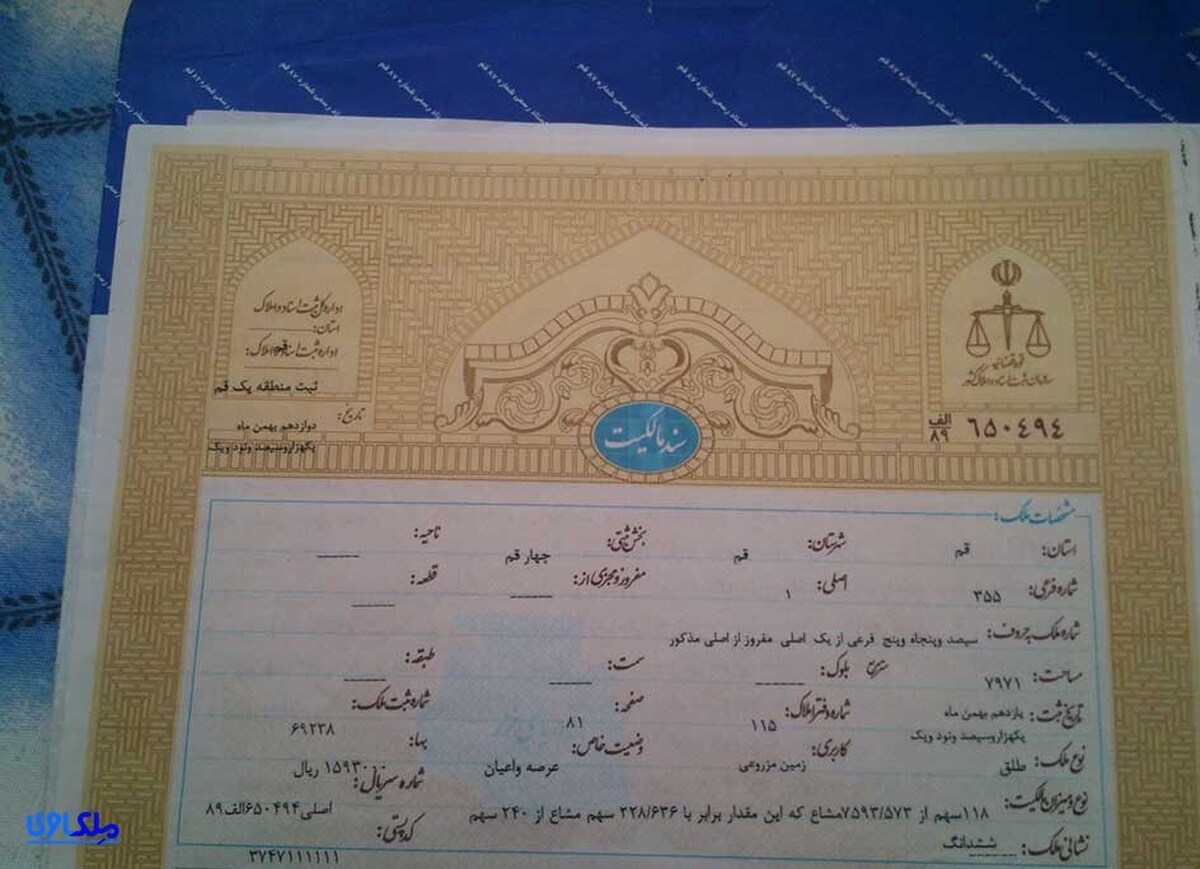 اداره کل ثبت اسناد و املاک
استان:
اداره ثبت اسناد و املاک: قم
ثبت منطقه یک قم
تاریخ:
دوازدهم بهمن ماه
یکهزاروسیصد ونود ویک
قوه قضائیه
سازمان ثبت اسناد و املاک کشور
الف
۸۹
۶۵۰۴۹۴
سند مالکیت
مشخصات ملک:
استان: قم شهرستان: قم بخش ثبتی: چهار قم ناحیه: ـــــــ
شماره فرعی: ۳۵۵ اصلی: ۱ مفروز و مجزی از: ـــــــ قطعه: ـــــــ
شماره ملک بحروف: سیصد وپنجاه وپنج فرعی از یک اصلی مفروز از اصلی مذکور
مساحت: ۷۹۷۱ مترمربع بلوک: ـــــــ سمت: ـــــــ طبقه: ـــــــ
تاریخ ثبت: یازدهم بهمن ماه یکهزاروسیصد ونود ویک شماره دفتر املاک: ۱۱۵ صفحه: ۸۱ شماره ثبت ملک: ۶۹۲۳۸
نوع ملک: طلق کاربری: زمین مزروعی وضعیت خاص: عرصه واعیان بها: ۱۵۹۳۰۰۰۰ ریال
نوع و میزان مالکیت: ۱۱۸سهم از ۷۵۹۳/۵۷۳مشاع که این مقدار برابر با ۲۲۸/۶۳۶ سهم مشاع از ۲۴۰ سهم
ششدانگ
شماره سریال: اصلی۶۵۰۴۹۴الف۸۹
نشانی ملک: ـــــــ
کدپستی: ۳۷۴۷۱۱۱۱۱۱
ملکاوی